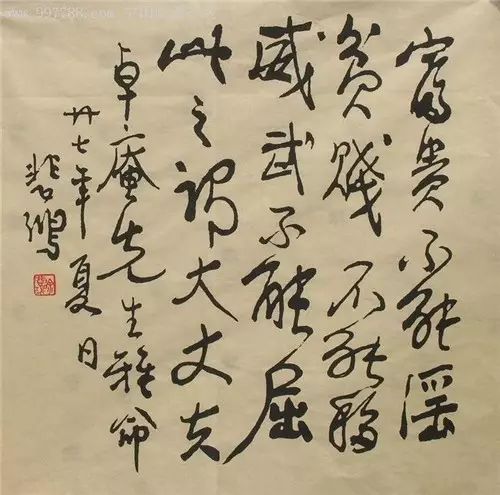 富貴不能淫
貧賤不能移
威武不能屈
此之謂大丈夫
卓庵先生雅命
廿七年夏日
悲鴻
www.997788.com